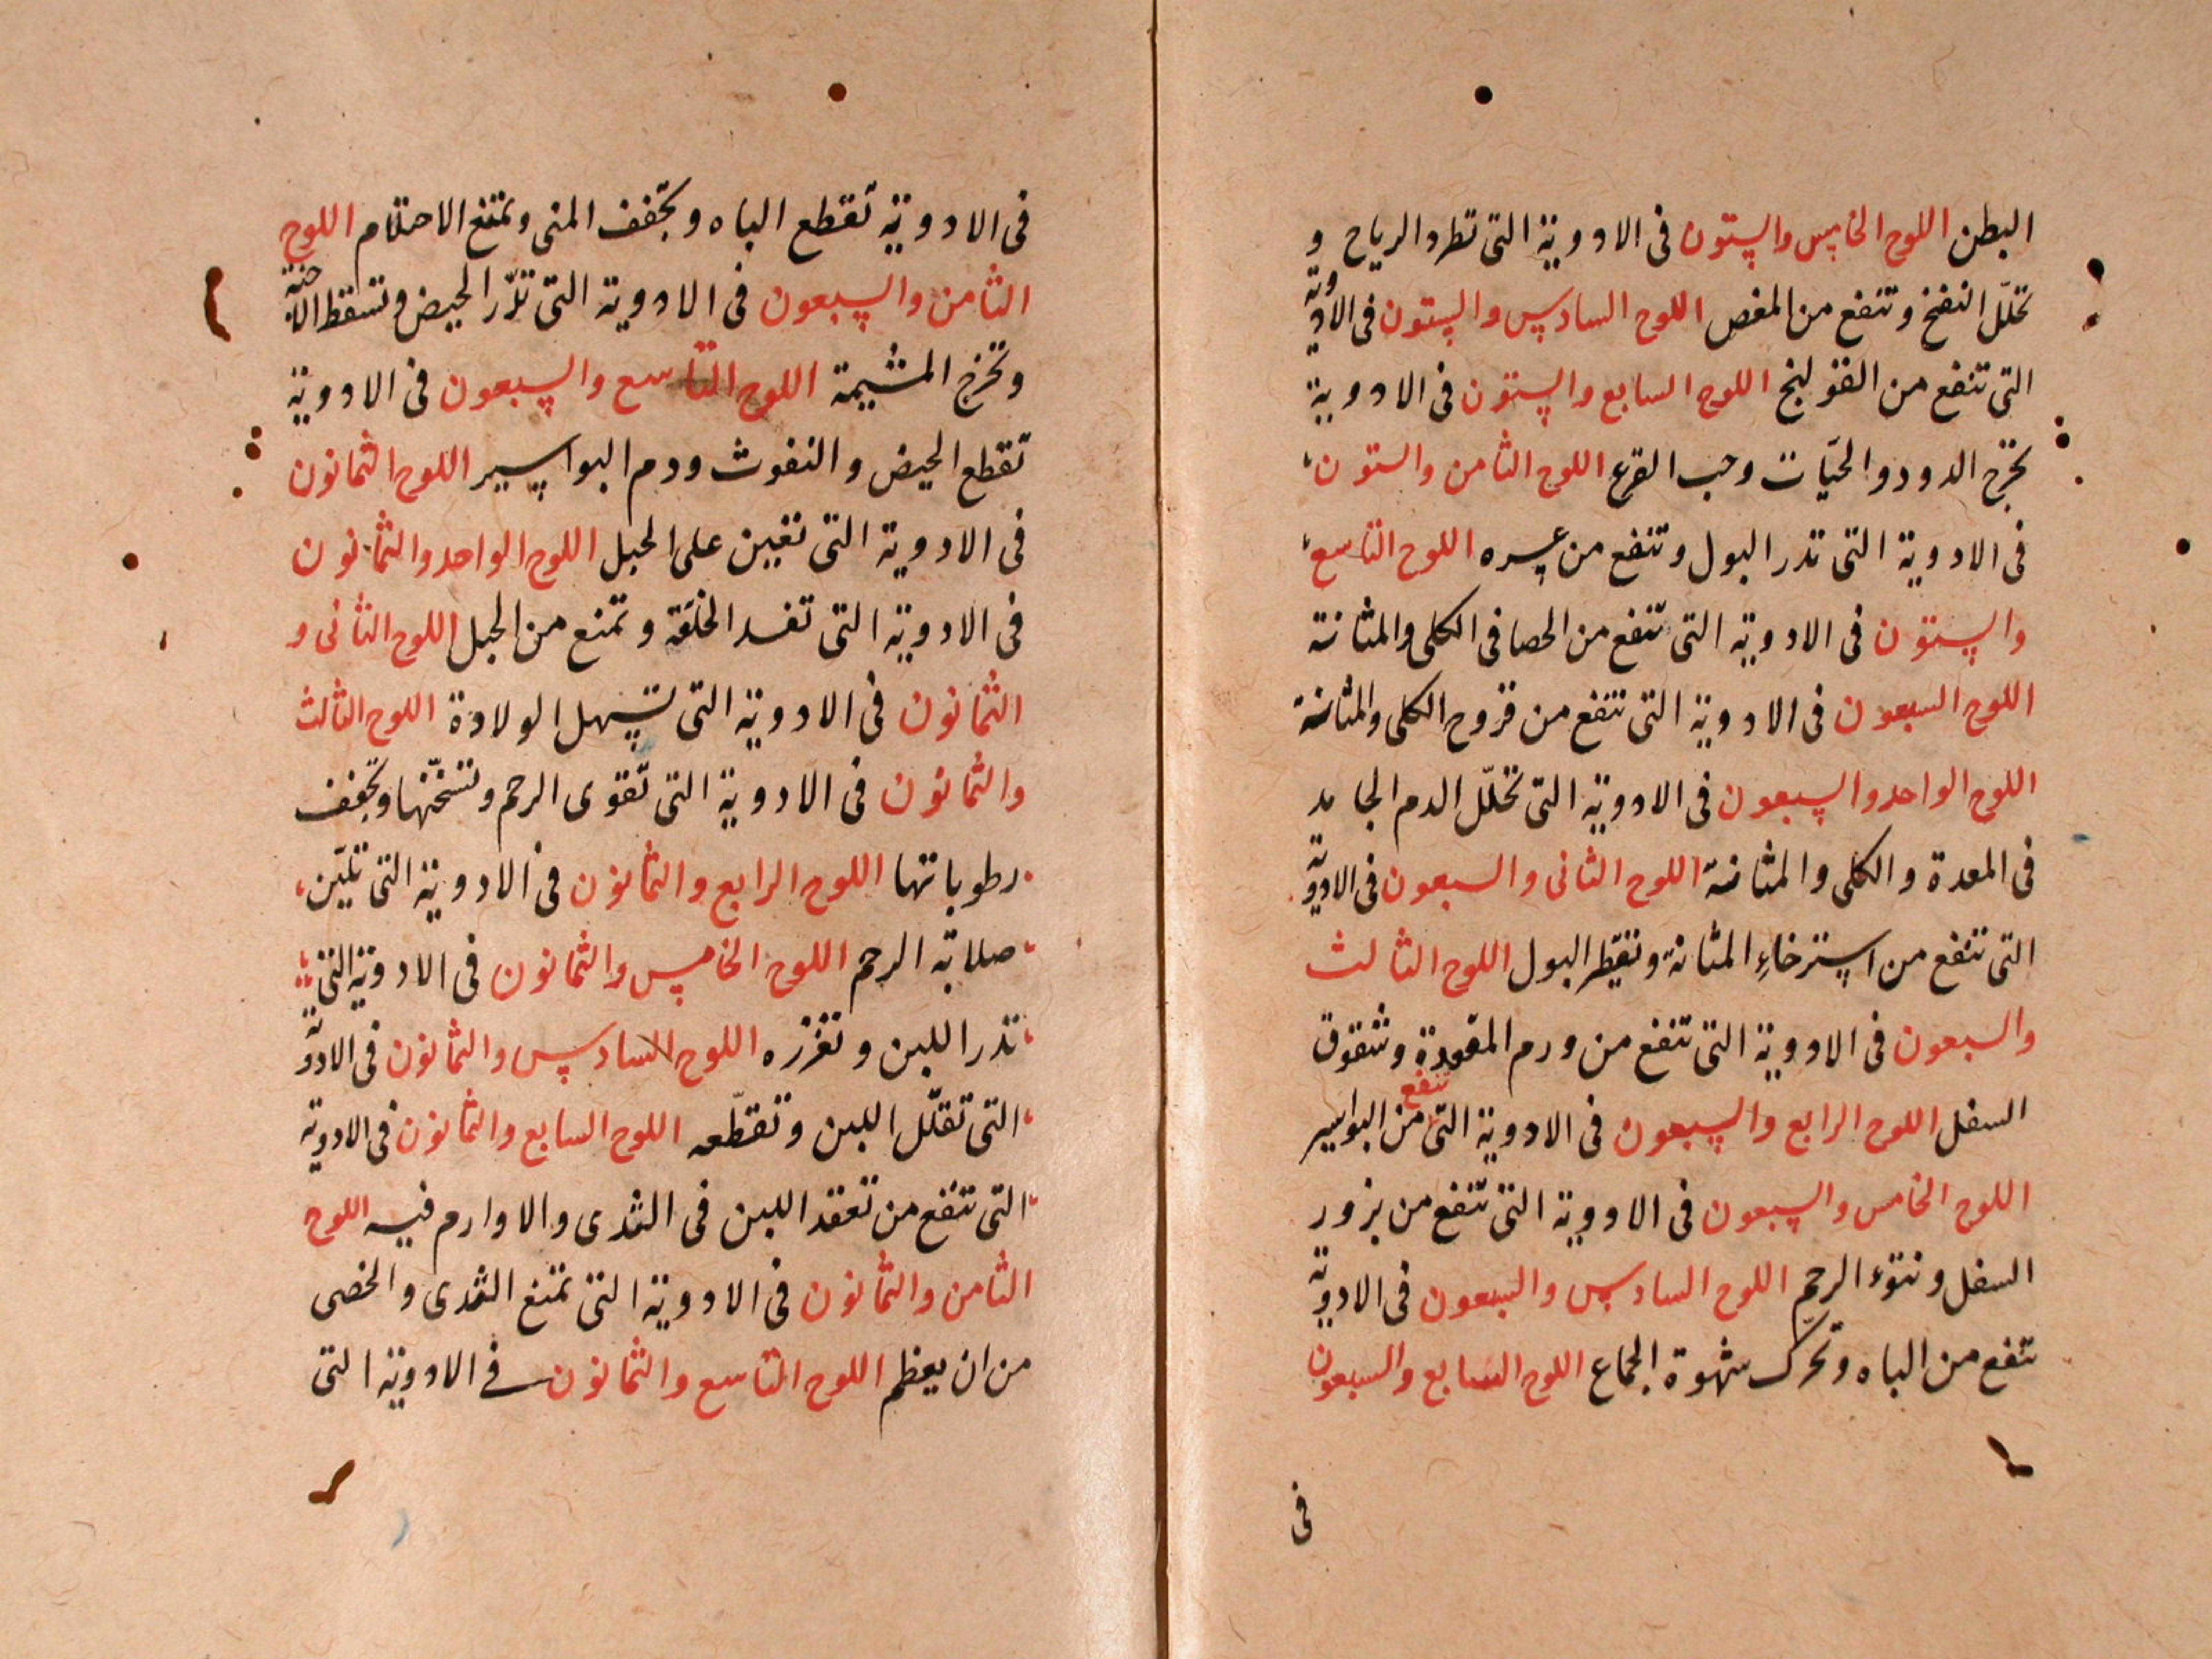 البطن اللوح الخامس والستون فى الادوية التى تطرد الرياح و
تحلّل النفخ وتنفع من المغص اللوح السادس والستون فى الادوية
التى تنفع من القولنج اللوح السابع والستون فى الادوية
تخرج الدود والحيّات وحب القرع اللوح الثامن والستون
فى الادوية التى تدر البول وتنفع من عسره اللوح التاسع
والستون فى الادوية التى تنفع من الحصا فى الكلى والمثانة
اللوح السبعون فى الادوية التى تنفع من قروح الكلى والمثانة
اللوح الواحد والسبعون فى الادوية التى تحلّل الدم الجامد
فى المعدة والكلى والمثانة اللوح الثانى والسبعون فى الادوية
التى تنفع من استرخاء المثانة وتقطير البول اللوح الثالث
والسبعون فى الادوية التى تنفع من ورم المقعودة وشقوق
السفل اللوح الرابع والسبعون فى الادوية التى تنفع من البواسير
اللوح الخامس والسبعون فى الادوية التى تنفع من بزور
السفل ونتوء الرحم اللوح السادس والسبعون فى الادوية
تنفع من الباه وتحرّك شهوة الجماع اللوح السابع والسبعون
فى
فى الادوية تقطع الباه وتجفف المنى وتمنع الاحتلام اللوح
الثامن والسبعون فى الادوية التى تدّر الحيض وتسقط الاجنة
وتخرج المشيمة اللوح التاسع والسبعون فى الادوية
تقطع الحيض والنفوث ودم البواسير اللوح الثمانون
فى الادوية التى تعين على الحبل اللوح الواحد والثمانون
فى الادوية التى تفسد الخلقة وتمنع من الحبل اللوح الثانى و
الثمانون فى الادوية التى تسهل الولادة اللوح الثالث
والثمانون فى الادوية التى تقوى الرحم وتسخّنها وتجفف
رطوباتها اللوح الرابع والثمانون فى الادوية التى تليّن
صلابة الرحم اللوح الخامس والثمانون فى الادوية التى
تدر اللبن وتغزره اللوح السادس والثمانون فى الادوية
التى تقلّل اللبن وتقطّعه اللوح السابع والثمانون فى الادوية
التى تنفع من تعقد اللبن فى الثدى والاوارم فيه اللوح
الثامن والثمانون فى الادوية التى تمنع الثدى والخصى
من ان يعظم اللوح التاسع والثمانون فى الادوية التى